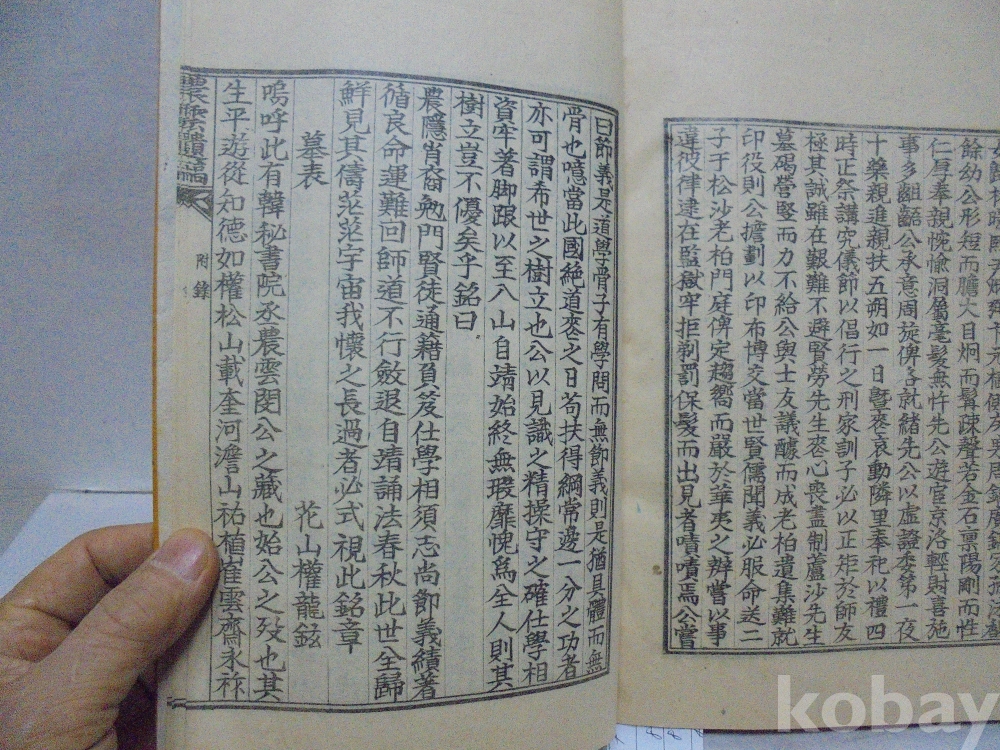 餘幼公形短而膽大目炯而髯疎聲若金石禀陽剛而性
仁厚奉親悅愉洞屬毫髮無忤先公遊宦京洛輕財喜施
事多齟齬公承意周旋俾各就緖先公以虛證委第一夜
十藥親進親扶五朔如一日曁喪哀動隣里奉祀以禮四
時正祭講究儀節以倡行之刑家訓子必以正矩於師友
極其誠雖在艱難不避賢勞先生喪心喪盡制蘆沙先生
墓碣營竪而力不給公與士友議醵而成老柏遺集難就
印役則公擔劃以印布博交當世賢儒聞義必服命送二
子于松沙老柏門庭俾定趨嚮而嚴於華夷之辨嘗以事
違彼律逮在監獄牢拒剃罰保髮而出見者嘖嘖焉公嘗
曰節義是道學骨子有學問而無節義則是猶具體而無
骨也噫當此國絶道喪之日苟扶得綱常邊一分之功者
亦可謂希世之樹立也公以見識之精操守之確仕學相
資牢著脚跟以至入山自靖始終無瑕靡愧爲全人則其
樹立豈不優矣乎銘曰
農隱肖裔勉門賢徒通籍負笈仕學相須志尚節義績著
循良命運難回師道不行斂退自靖誦法春秋此世全歸
鮮見其儔茫茫宇宙我懷之長過者必式視此銘章
墓表 花山權龍鉉
嗚呼此有韓秘書院丞農雲閔公之藏也始公之歿也其
生平遊從知德如權松山載奎河澹山祐植崔雲齋永祚
附錄
kobay